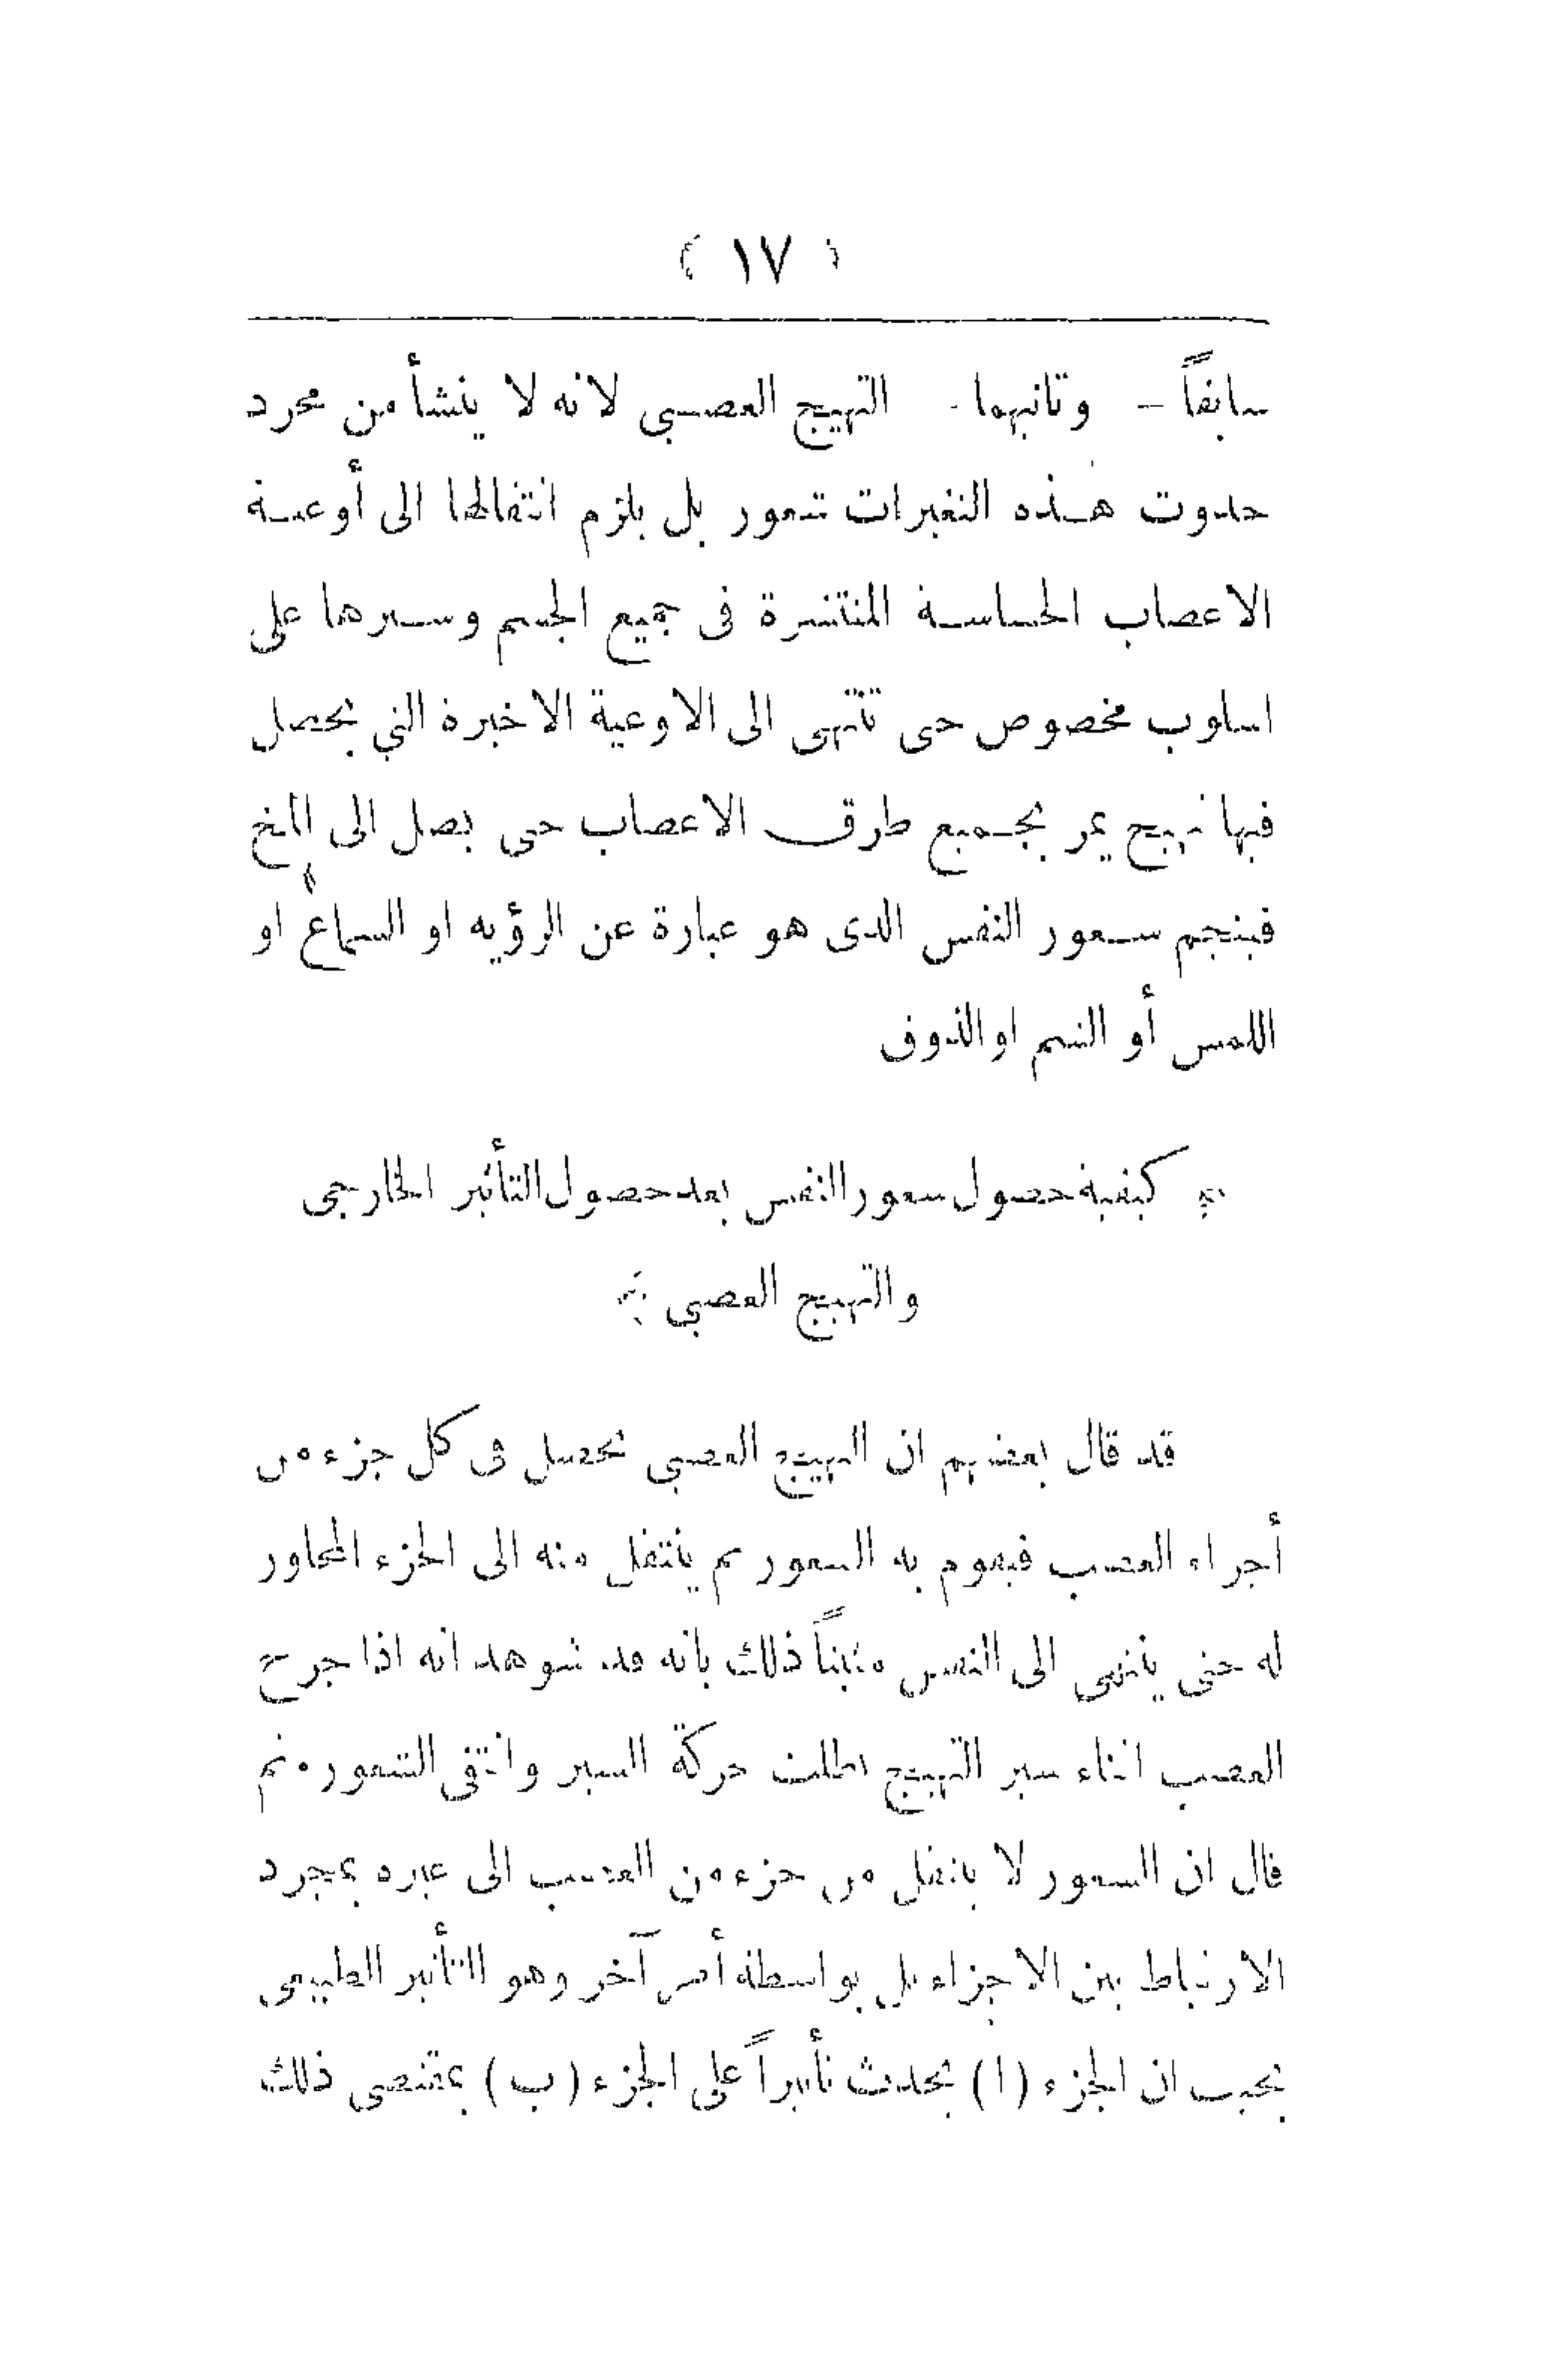 ( ١٧ )
سابقاً — وثانيهما - التهيج العصبي لانه لا ينشأ من مجرد
حدوث هذه التغيرات شعور بل يلزم انتقالها الى أوعية
الاعصاب الحساسة المنتشرة فى جميع الجسم وسيرها على
اسلوب مخصوص حتى تنتهى الى الاوعية الاخيرة التي يحصل
فيها تهيج يمر بجميع طرق الاعصاب حتى يصل الى المخ
فينجم شعور النفس الذى هو عبارة عن الرؤيه او السماع او
اللمس أو الشم او الذوق
كيفية حصول شعور النفس بعد حصول التأثير الخارجى
والتهييج العصبي
قد قال بعضهم ان التهييج العصبي يحصل فى كل جزء من
أجزاء العصب فيقوم به الشعور ثم ينتقل منه الى الجزء المجاور
له حتى ينتهى الى النفس مثبتاً ذلك بانه قد شوهد انه اذا جرح
العصب اثناء سير التهييج بطلت حركة السير وانتفى الشعور ثم
قال ان الشعور لا ينتقل من جزء من العصب الى غيره بمجرد
الارتباط بين الاجزاء بل بواسطة أمر آخر وهو التأثير الطبيعى
بحيث ان الجزء (ا) يحدث تأثيراً على الجزء (ب) بمقتضى ذلك